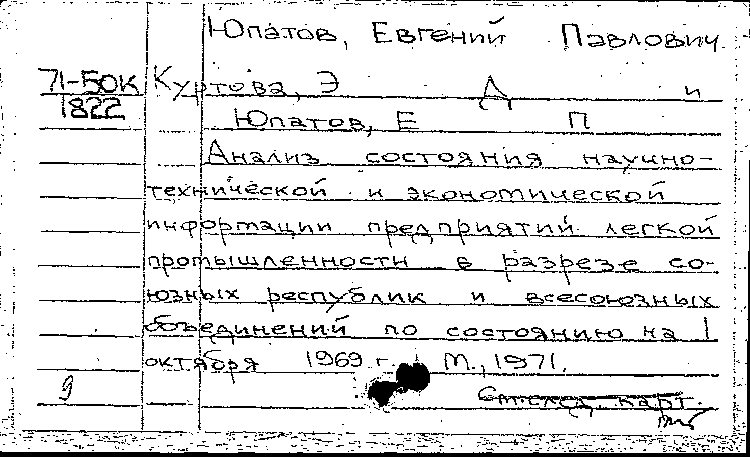 Юпатов, Евгений Павлович
71-БОК Куртова, Э Д и
1822 Юпатов, Е П
Анализ состояния научно-
технической и экономической
информации предприятий легкой
промышленности в разрезе со-
юзных республик и всесоюзных
объединений по состоянию на 1
октября 1969 г. М., 1971.
9 карт.